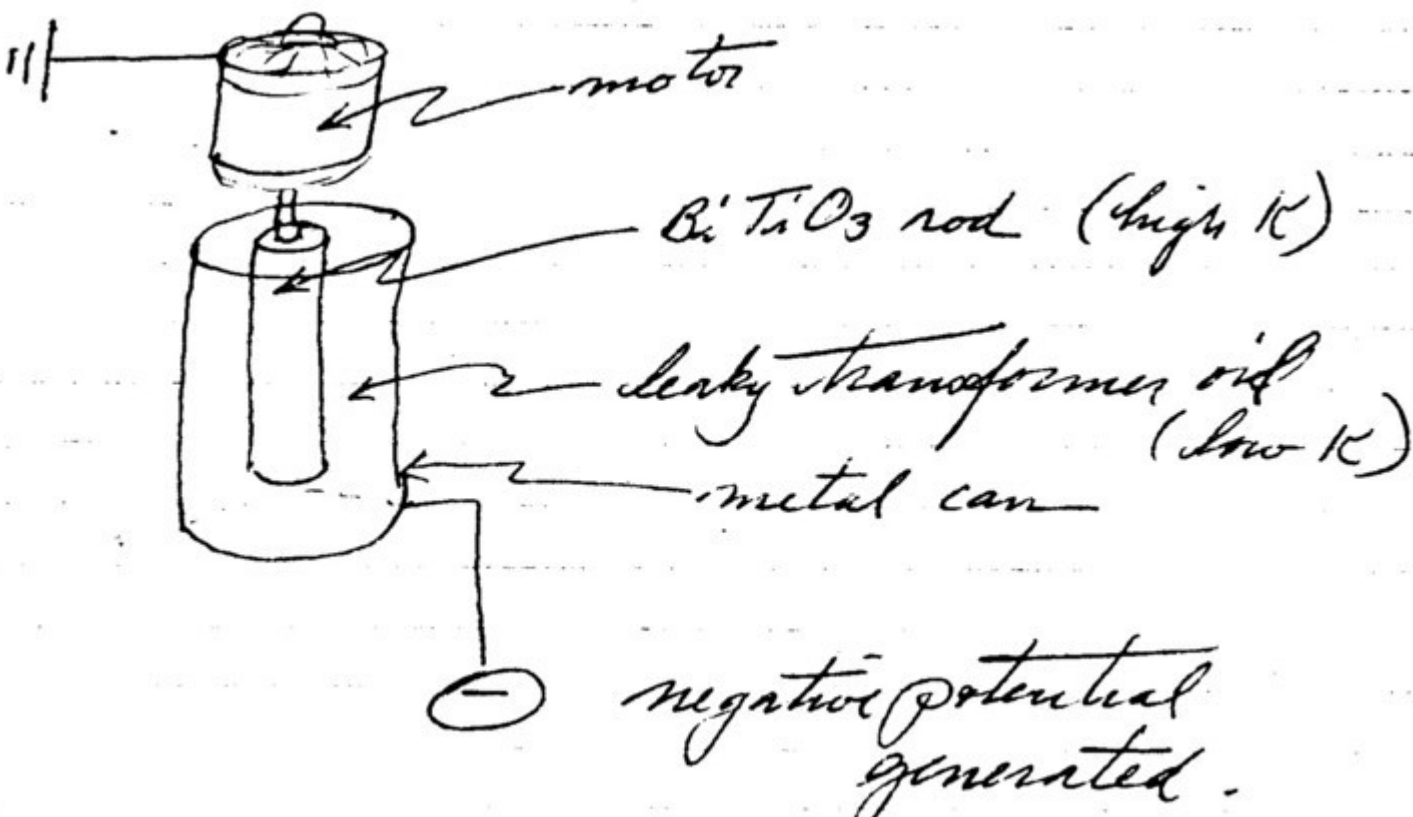 motor
Bi TiO3 rod (high K)
leaky transformer oil
(low K)
metal can
−
negative potential
generated.